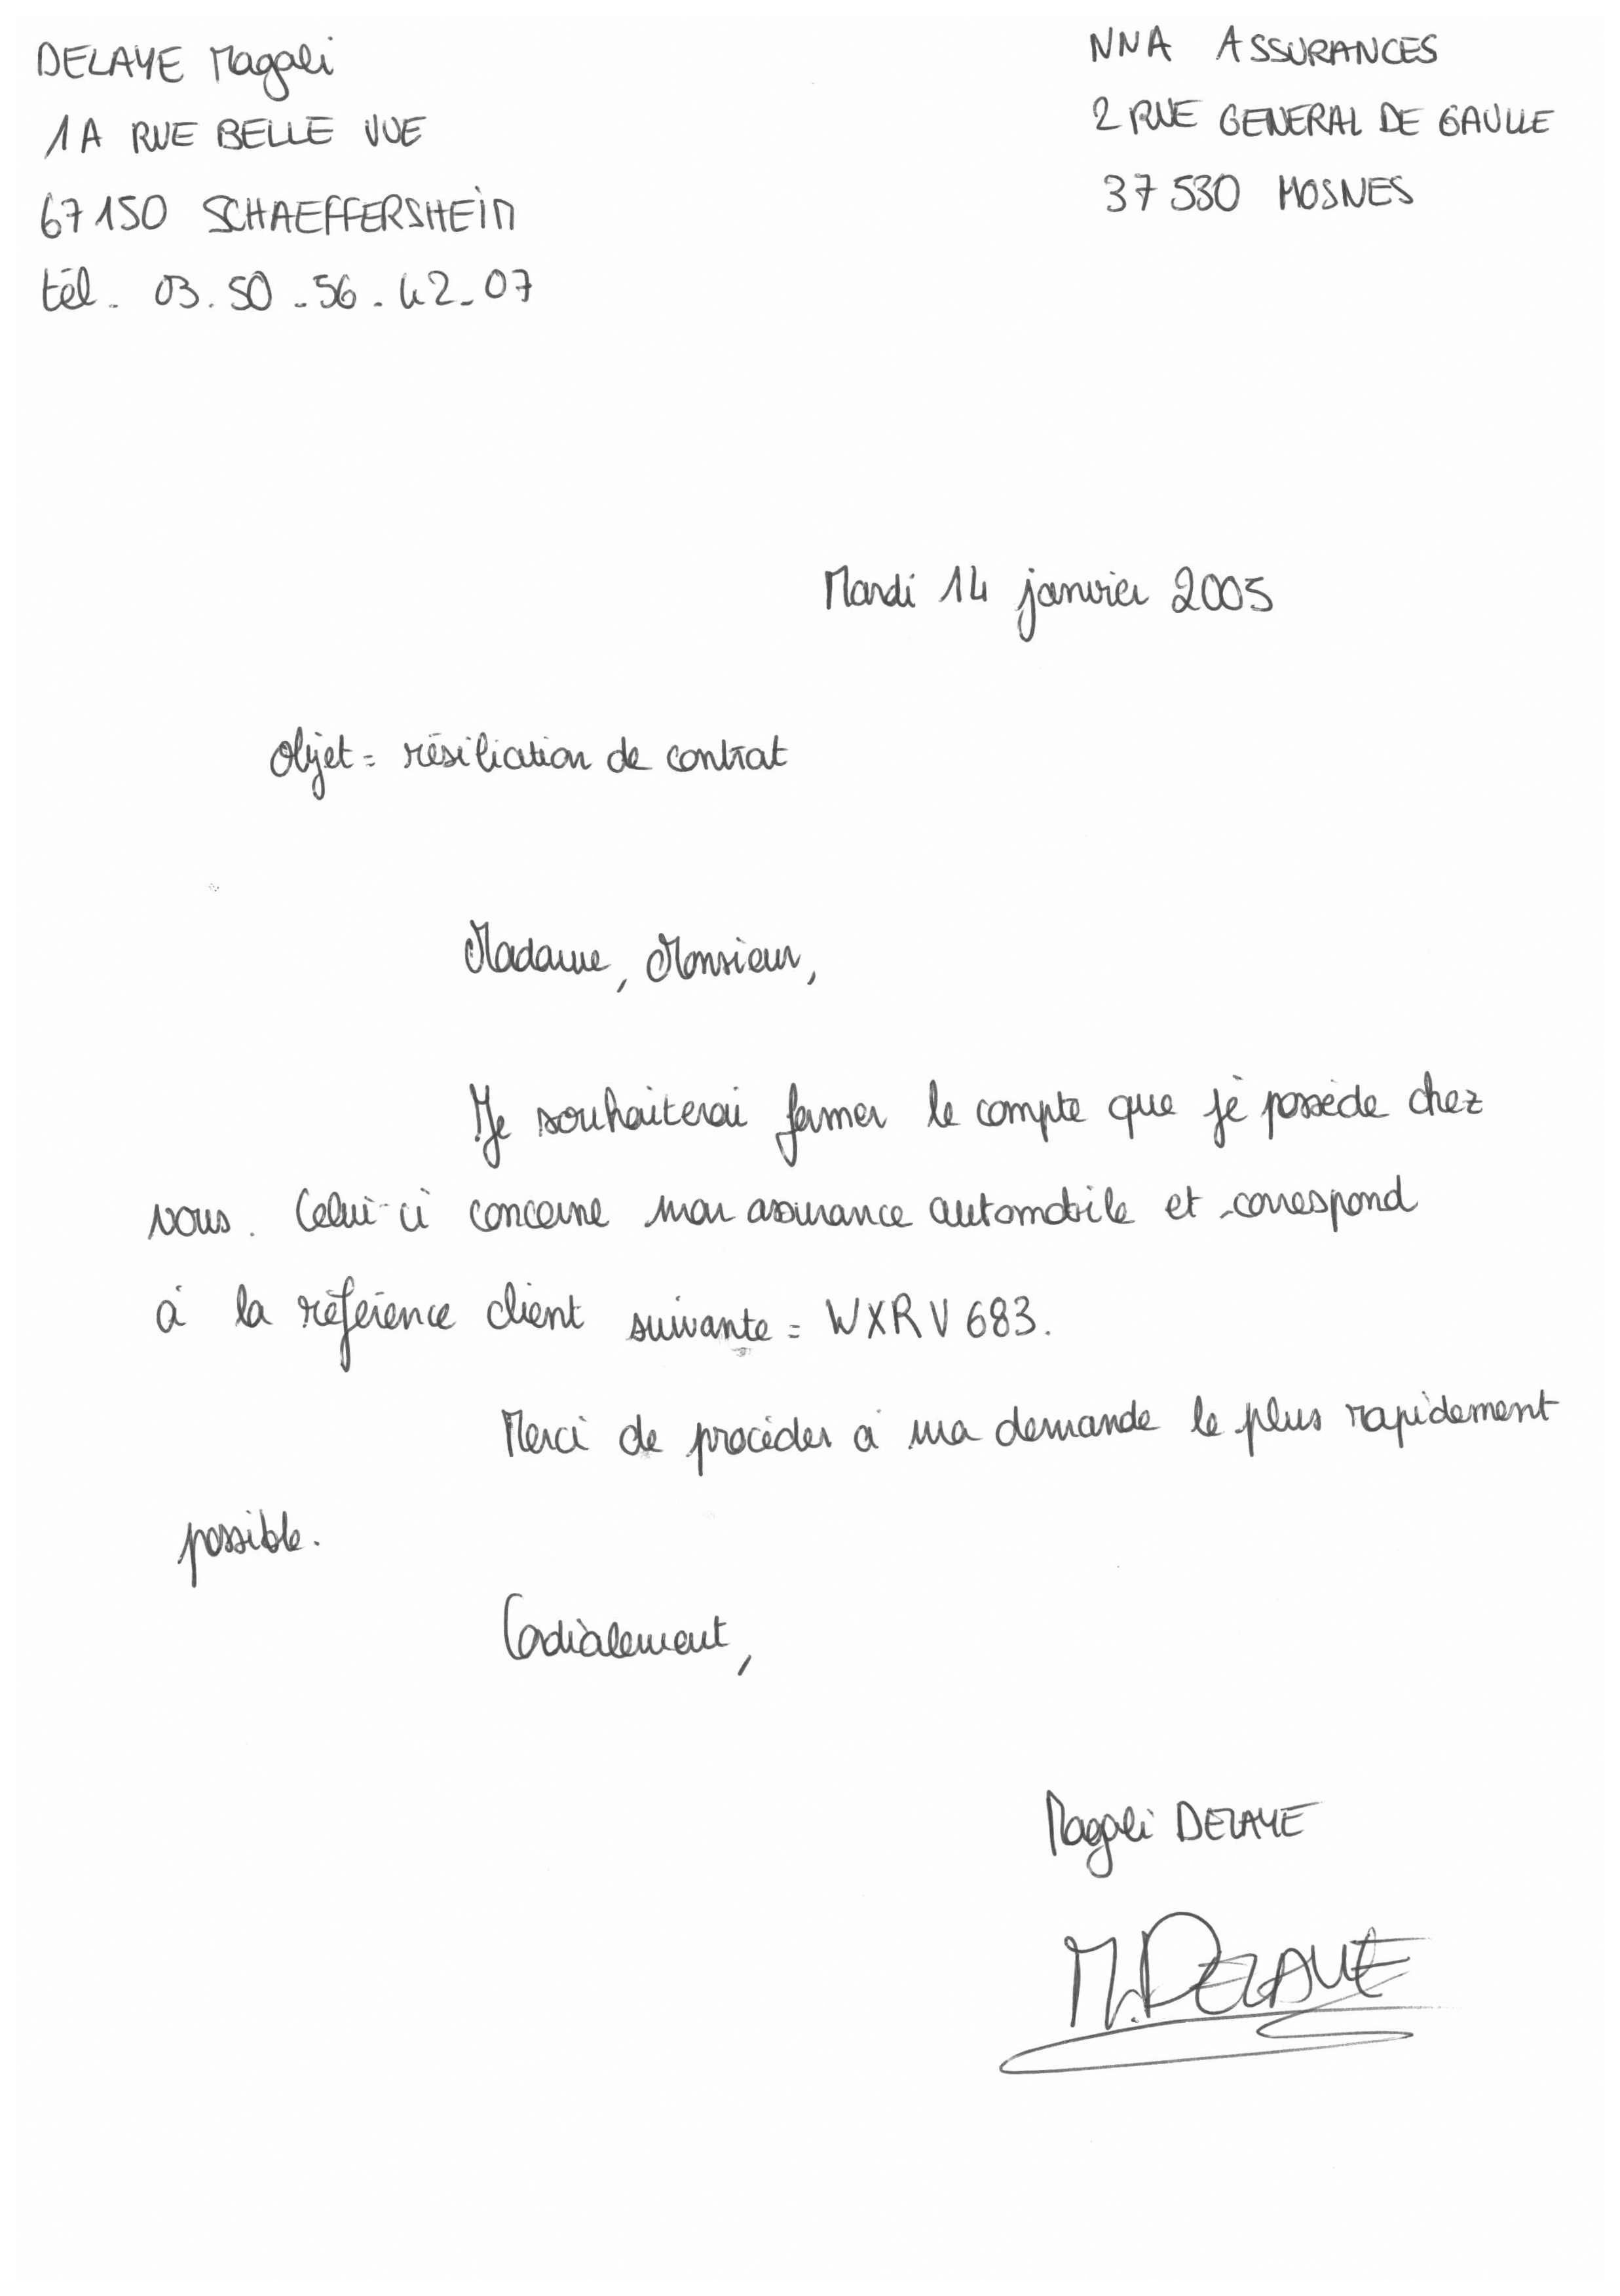 DELAYE Magali
1A RUE BELLE VUE
67150 SCHAEFFERSHEIM
tél. 03.50.56.42.07
NNA ASSURANCES
2 RUE GENERAL DE GAULLE
37530 MOSNES
Mardi 14 janvier 2005
Objet = résiliation de contrat
Madame, Monsieur,
Je souhaiterai fermer le compte que je possède chez
vous. Celui-ci concerne mon assurance automobile et correspond
à la référence client suivante = WXRV683.
Merci de procéder à ma demande le plus rapidement
possible.
Cordialement,
Magali DELAYE
M.DELAYE